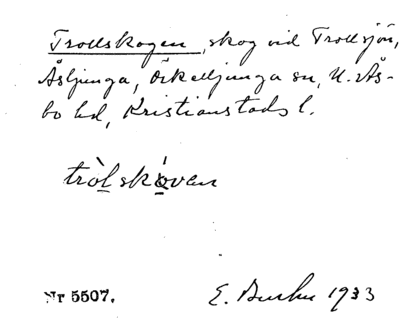 Trollskogen, skog vid Trollsjön,
Åsljunga, Örkelljunga sn, N. Ås-
bo hd, Kristianstads l.
tròlskòven
Nr 5507.
E. 1933